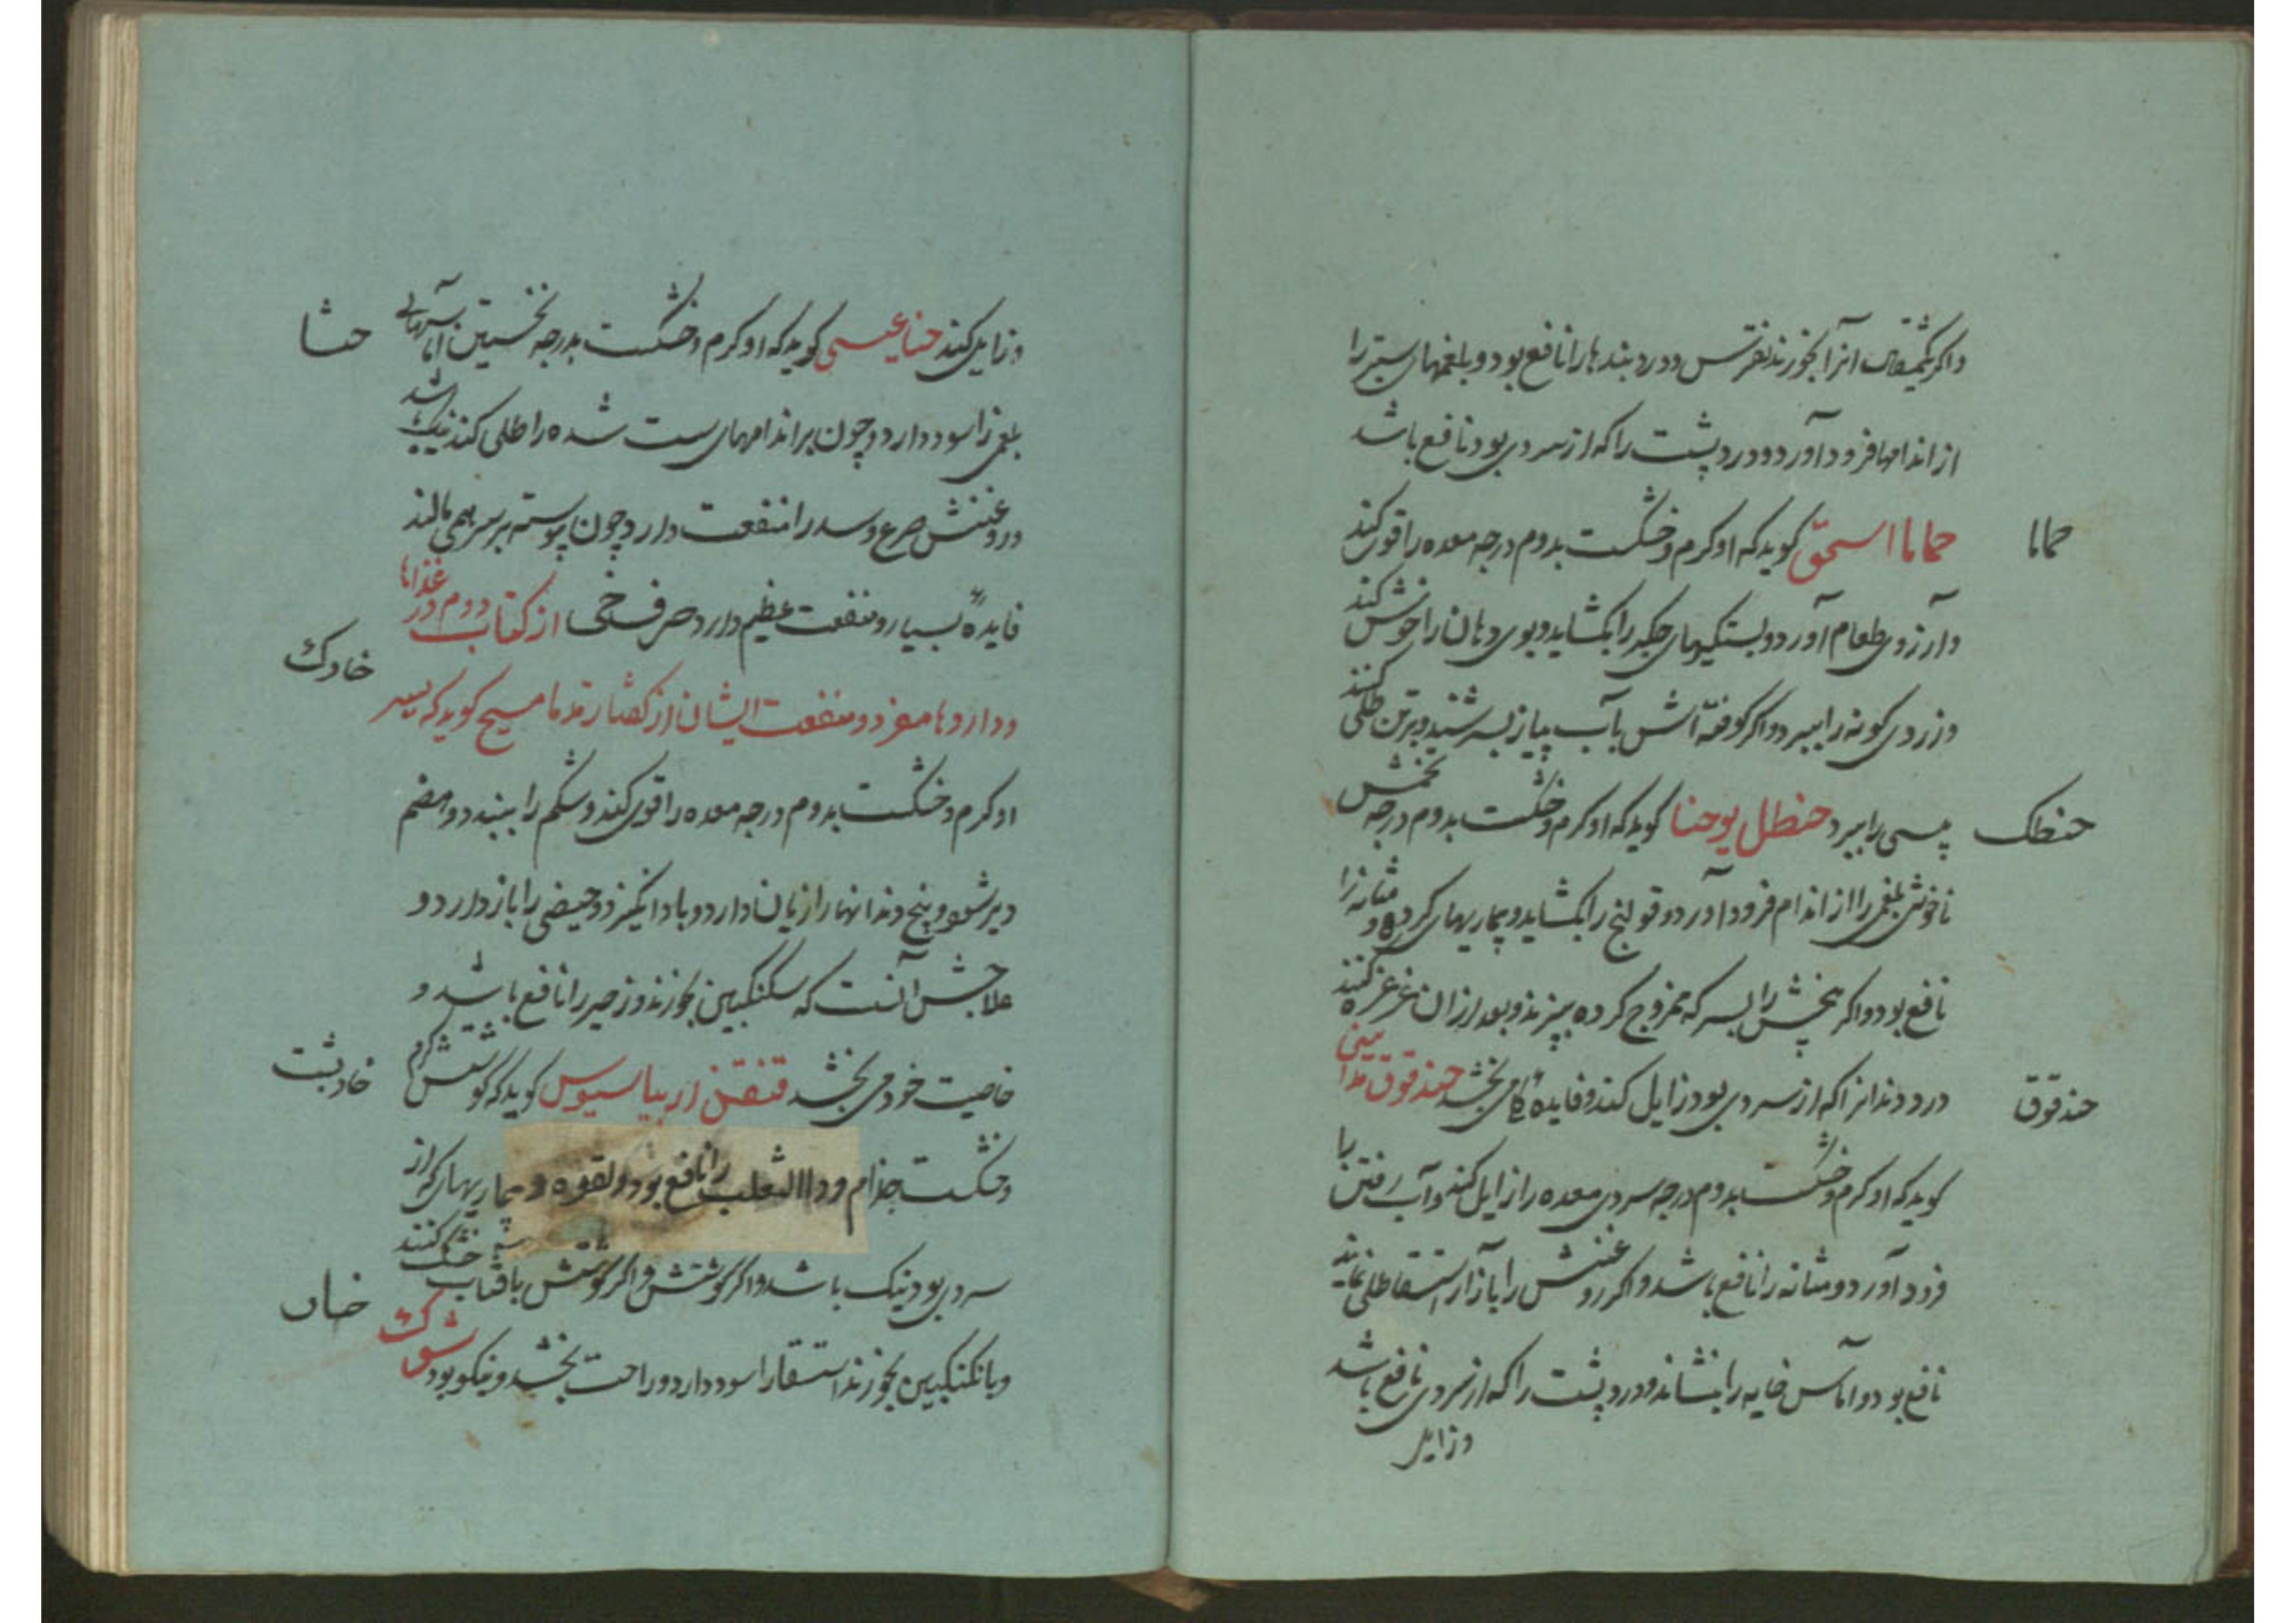 واکر یکمثقال آنرا بخورند نقرس ودرد بندها را نافع بود وبلغمهای ستبر را
از اندامها فرود آورد ودرد پشت را که از سردی بود نافع باشد
حماما
حماما اسحق کوید که او کرم وخشکست بدوم درجه معده را قوی کند
وآرزوی طعام آورد وبستکیهای جکر را بکشاید وبوی دهان را خوش کند
وزردی کونه را ببرد واکر کوفته‌اش بآب پیاز بسرشند وبر تن طلی کنند
حنطل
پیسی را ببرد حنظل یوحنا کوید که او کرم وخشکست بدوم درجه تخمش
ناخوش بلغمی را از اندام فرود آورد وقولنج را بکشاید وبیماریهای کرده و مثانه را
نافع بود واکر بیخش را بسرکه ممزوج کرده بپزند وبعد از ان غرغره کنند
حندقوق
درد دندانرا که از سردی بود زایل کند وفایده می بخشد حندقوق
کوید که او کرم وخشکست بدوم درجه سردی معده را زایل کند وآب رفتن را
فرود آورد ومثانه را نافع باشد واکر روغنش را بآزار استسقا طلی نمایند
نافع بود وآماس خایه را بنشاند ودرد پشت را که از سردی نافع باشد
وزایل
حنا
وزایل کند حنا عیسی کوید که او کرم وخشکست بدرجه نخستین آماسهائی
بلغمی را سود دارد وچون بر اندامهای سست شده را طلی کند نیک باشد
وروغنش صرع وسدر را منفعت دارد وچون پیوسته بر سر همی مالند
فایدهٔ بسیار ومنفعت عظیم دارد حرف خی از کتاب دوم در غذاها
خادک
وداروها مفرد ومنفعت ایشان از کفتار قدما مسیح کوید که
او کرم وخشکست بدوم درجه معده را قوی کند وشکم را ببندد وهضم
دیر شود وبیخ دندانها را زیان دارد وباد انکیزد وحیض را باز دارد و
علاجش آنست که سکنکبین بخورند وزحیر را نافع باشد و
خارپشت
خاصیت خود می بخشد قنفذ اریباسیوس کوید که کوشتش کرم
وخشکست جذام وداالثعلب را نافع بود ولقوه وبیماریهای کز از
سردی بود نیک باشد واکر کوشتش واکر کوشتش بآفتاب خشک کنند
وبانکنکبین بخورند استسقا را سود دارد وراحت بخشد ونیکو بود